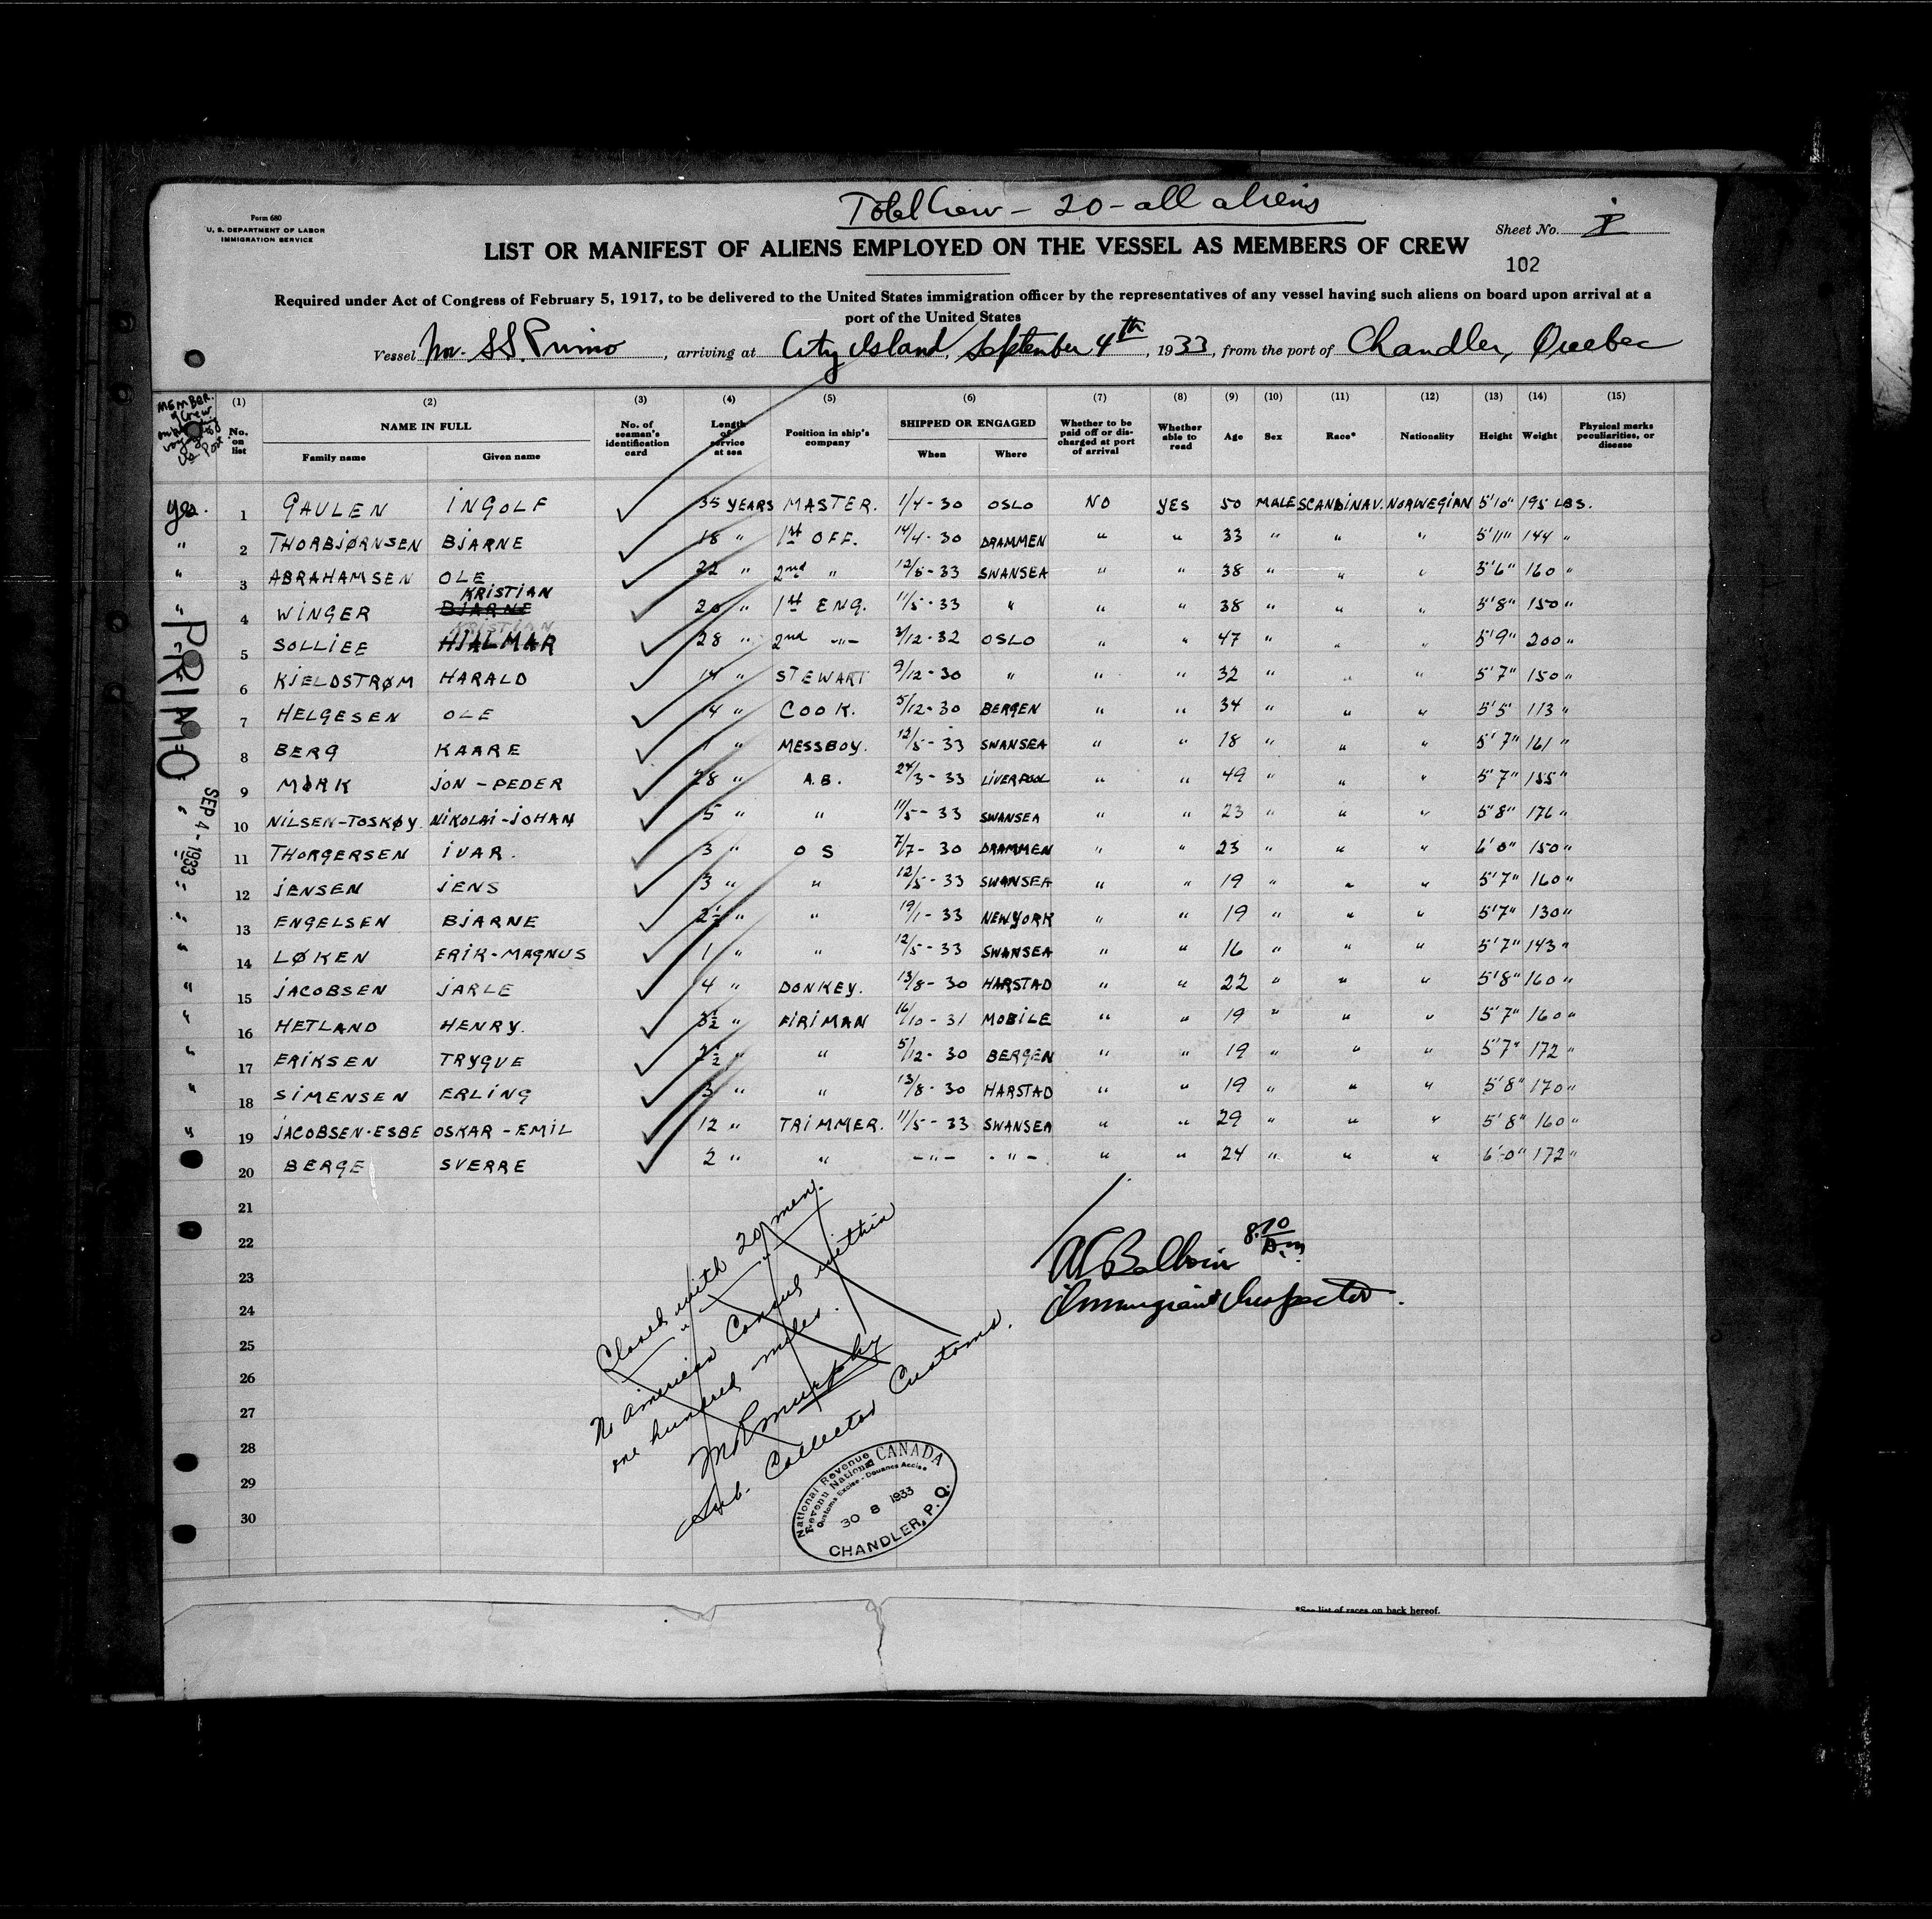 Total Crew - 20 - all aliens
Form 680
U. S. DEPARTMENT OF LABOR
IMMIGRATION SERVICE
Sheet No. 1
LIST OR MANIFEST OF ALIENS EMPLOYED ON THE VESSEL AS MEMBERS OF CREW
102
Required under Act of Congress of February 5, 1917, to be delivered to the United States immigration officer by the representatives of any vessel having such aliens on board upon arrival at a
port of the United States
Vessel SS. Primo, arriving at City Island, September 4th, 1933, from the port of Chandler, Quebec
MEMBER of Crew US Port
(1) (2) (3) (4) (5) (6) (7) (8) (9) (10) (11) (12) (13) (14) (15)
No. on list NAME IN FULL Family name Given name No. of seaman's identification card Length of service at sea Position in ship's company SHIPPED OR ENGAGED When Where Whether to be paid off or discharged at port of arrival Whether able to read Age Sex Race* Nationality Height Weight Physical marks peculiarities, or disease
yes. 1 GAULEN INGOLF 35 YEARS MASTER. 1/4-30 OSLO NO YES 50 MALE SCANDINAV. NORWEGIAN 5'10" 195 LBS.
" 2 THORBJØRNSEN BJARNE 18 " 1st OFF. 14/4-30 DRAMMEN " " 33 " " " 5'11" 144 "
" 3 ABRAHAMSEN OLE 22 " 2nd " 12/5-33 SWANSEA " " 38 " " " 5'6" 160 "
" 4 WINGER BJARNE KRISTIAN 20 " 1st ENG. 11/5-33 " " " 38 " " " 5'8" 150 "
" 5 SOLLIEE KRISTIAN HJALMAR 28 " 2nd -"- 3/12-32 OSLO " " 47 " " " 5'9" 200 "
6 KJELDSTRØM HARALD 14 " STEWART 9/12-30 " " " 32 " " " 5'7" 150 "
7 HELGESEN OLE 14 " COOK. 5/12-30 BERGEN " " 34 " " " 5'5" 113 "
8 BERG KAARE 1 " MESSBOY. 12/5-33 SWANSEA " " 18 " " " 5'7" 161 "
9 MØRK JON-PEDER 28 " A.B. 24/3-33 LIVERPOOL " " 49 " " " 5'7" 155 "
" 10 NILSEN-TOSKØY NIKOLAI-JOHAN 5 " " 11/5-33 SWANSEA " " 23 " " " 5'8" 176 "
" 11 THORGERSEN IVAR. 3 " O S 7/7-30 DRAMMEN " " 23 " " " 6'0" 150 "
" 12 JENSEN JENS 3 " " 12/5-33 SWANSEA " " 19 " " " 5'7" 160 "
" 13 ENGELSEN BJARNE 2½ " " 19/1-33 NEWYORK " " 19 " " " 5'7" 130 "
" 14 LØKEN ERIK-MAGNUS 1 " " 12/5-33 SWANSEA " " 16 " " " 5'7" 143 "
" 15 JACOBSEN JARLE 4 " DONKEY. 13/8-30 HARSTAD " " 22 " " " 5'8" 160 "
" 16 HETLAND HENRY. 3½ " FIRIMAN 16/10-31 MOBILE " " 19 " " " 5'7" 160 "
" 17 ERIKSEN TRYGVE 2½ " " 5/12-30 BERGEN " " 19 " " " 5'7" 172 "
" 18 SIMENSEN ERLING 3 " " 13/8-30 HARSTAD " " 19 " " " 5'8" 170 "
" 19 JACOBSEN-ESBE OSKAR-EMIL 12 " TRIMMER. 11/5-33 SWANSEA " " 29 " " " 5'8" 160 "
20 BERGE SVERRE 2 " " -"- -"- " " 24 " " " 6'-0" 172 "
21
22
23
24
25
26
27
28
29
30
PRIMO
SEP 4-1933
Closed with 20 men.
No American Consul within
one hundred miles.
Murphy
Sub. Collector Customs.
8.10 A.m
Immigrant Inspector.
National Revenue CANADA
Revenu National
Customs Excise - Douanes Accise
30 8 1933
CHANDLER, P. Q.
*See list of races on back hereof.